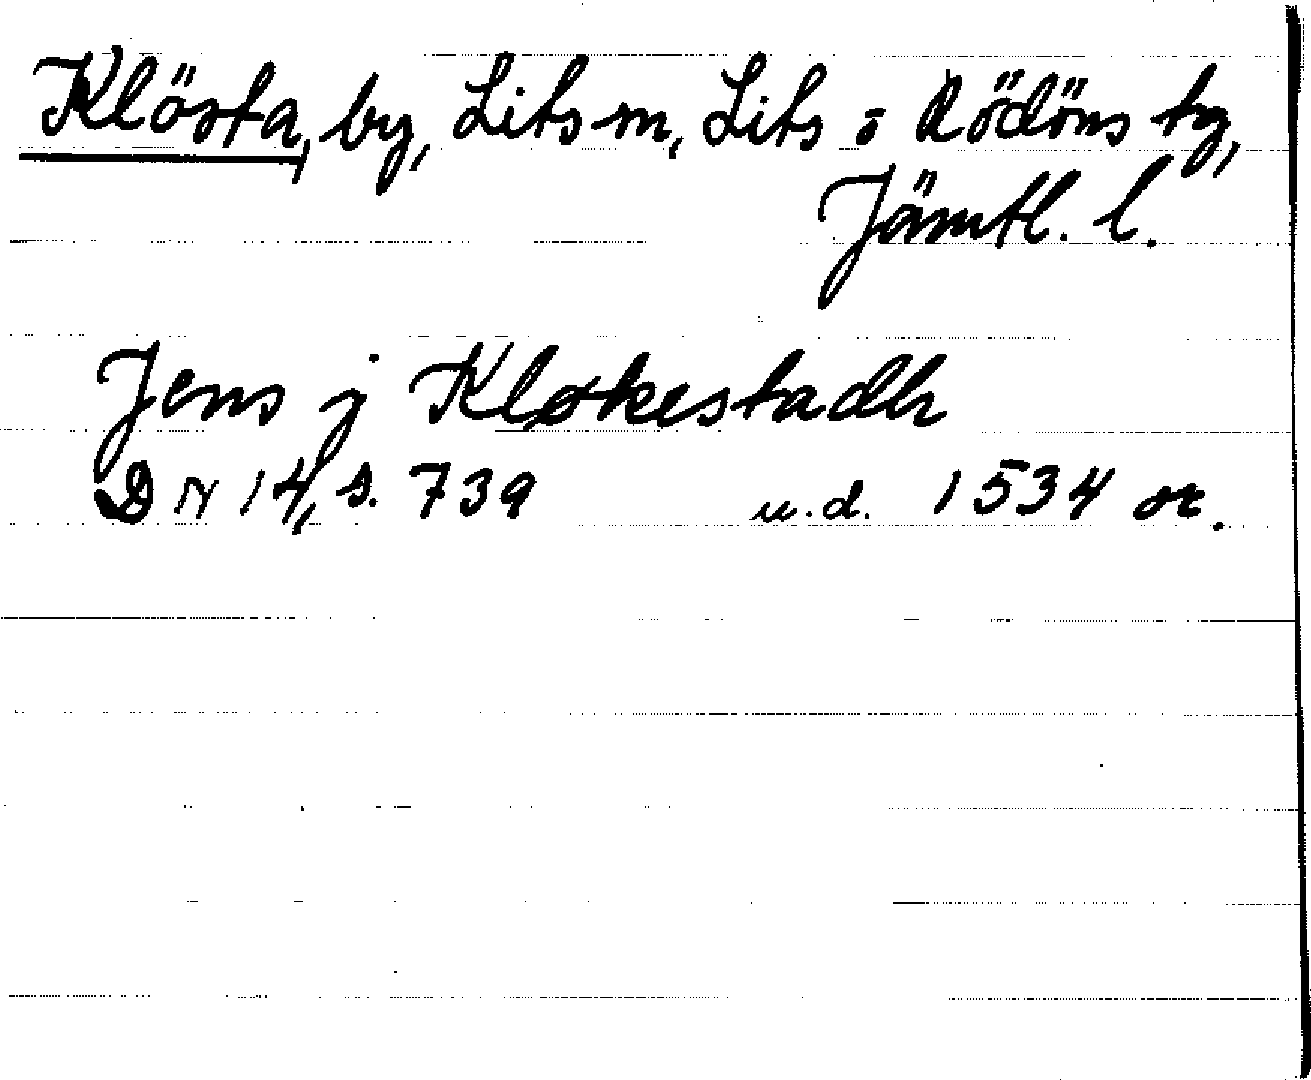 Klösta, by, Lits sn, Lits o Rödöns tg,
Jämtl. l.
Jens j Kløkestadh
DN 14, s. 739 u.d. 1534 or.